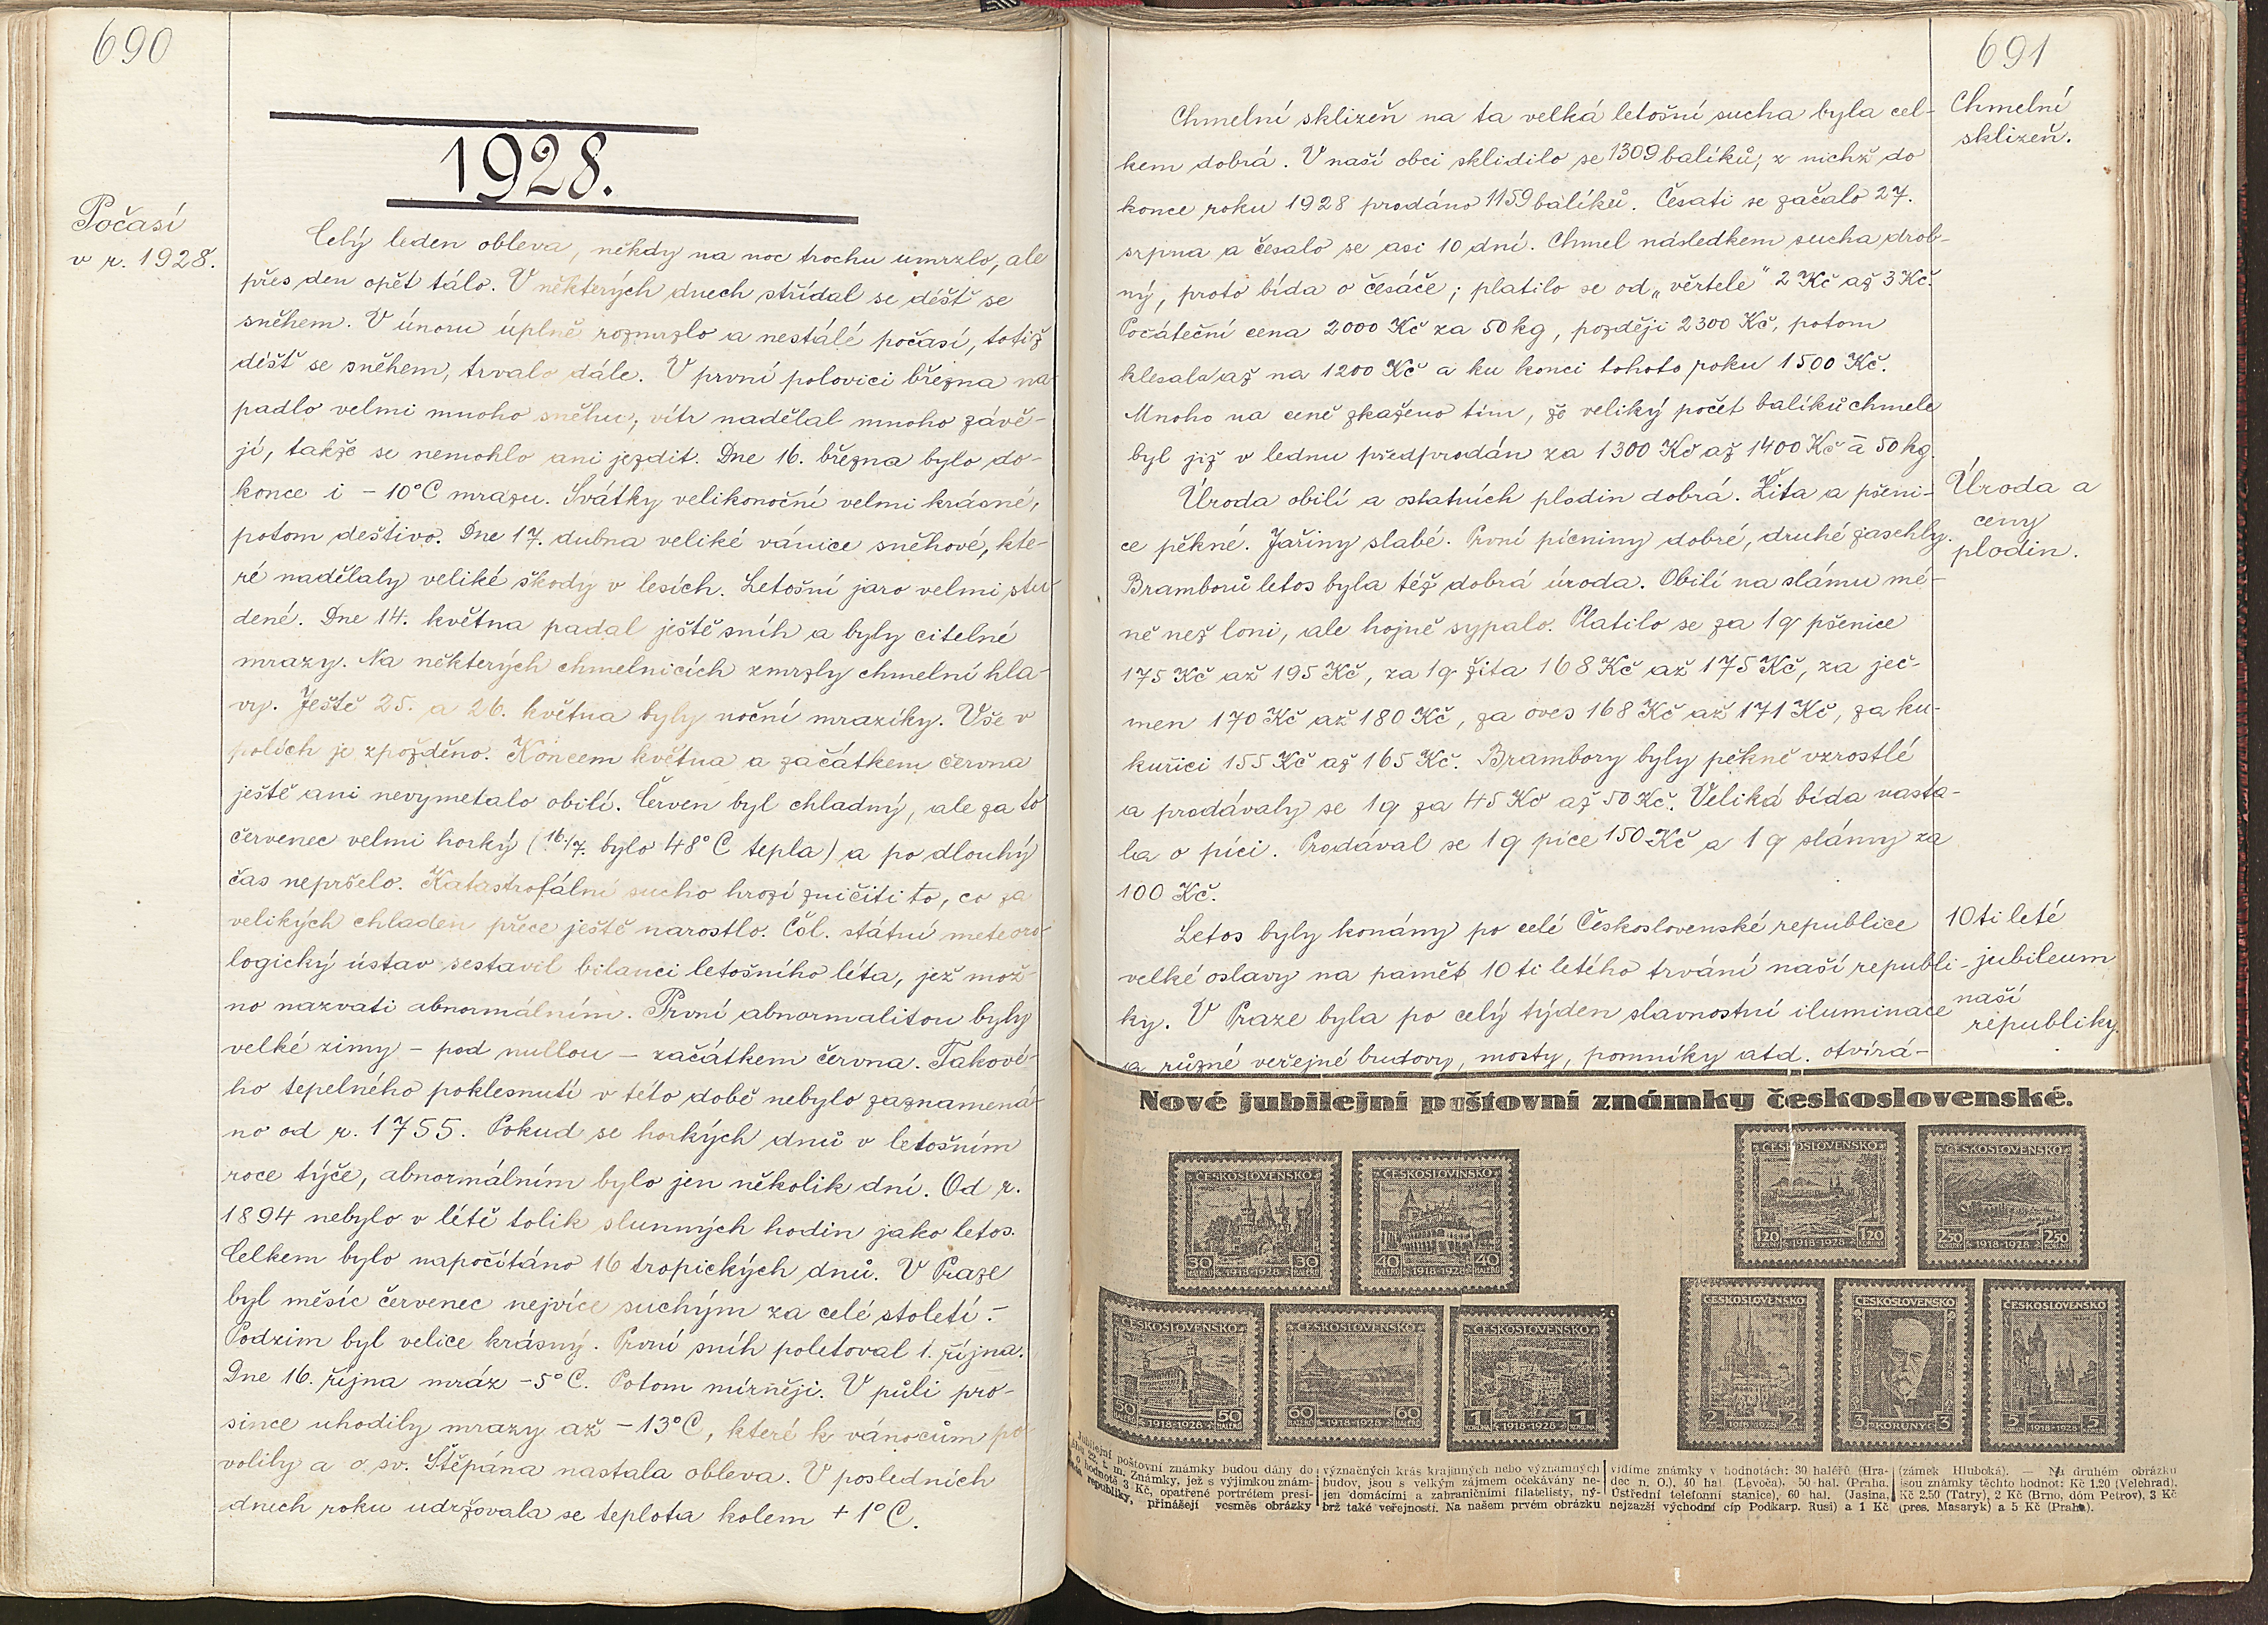 690
1928.
Počasí
v r. 1928.
Celý leden obleva, někdy na noc trochu umrzlo, ale
přes den opět tálo. V některých dnech střídal se déšť se
sněhem. V únoru úplně rozmrzlo a nestálé počasí, totiž
déšť se sněhem, trvalo dále. V první polovici března na
padlo velmi mnoho sněhu, vítr nadělal mnoho závě-
jí, takže se nemohlo ani jezdit. Dne 16. března bylo do-
konce i - 10°C mrazu. Svátky velikonoční velmi krásné,
potom deštivo. Dne 17. dubna veliké vánice sněhové, kte-
ré nadělaly veliké škody v lesích. Letošní jaro velmi stu
dené. Dne 14. května padal ještě sníh a byly citelné
mrazy. Na některých chmelnicích zmrzly chmelní hla-
vy. Ještě 25. a 26. května byly noční mrazíky. Vše v
polích je zpožděno. Koncem května a začátkem června
ještě ani nevymetalo obilí. Červen byl chladný, ale za to
červenec velmi horký (16./7. bylo 48°C tepla) a po dlouhý
čas nepršelo. Katastrofální sucho hrozí zničiti to, co za
velikých chladen přece ještě narostlo. Čsl. státní meteoro-
logický ústav sestavil bilanci letošního léta, jež mož-
no nazvati abnormálním. První abnormalitou byly
velké zimy - pod nullou - začátkem června. Takové-
ho tepelného poklesnutí v této době nebylo zaznamená-
no od r. 1755. Pokud se horkých dnů v letošním
roce týče, abnormálním bylo jen několik dní. Od r.
1894 nebylo v létě tolik slunných hodin jako letos.
Celkem bylo napočítáno 16 tropických dnů. V Praze
byl měsíc červenec nejvíce suchým za celé století. -
Podzim byl velice krásný. První sníh poletoval 1. října.
Dne 16. října mráz -5°C. Potom mírněji. V půli pro-
since uhodily mrazy až -13°C, které k vánocům po
volily a o sv. Štěpána nastala obleva. V posledních
dnech roku udržovala se teplota kolem +1°C.
691
Chmelní
sklizeň.
Chmelní sklizeň na ta velká letošní sucha byla cel-
kem dobrá. V naší obci sklidilo se 1309 balíků, z nichž do
konce roku 1928 prodáno 1159 balíků. Česati se začalo 27.
srpna a česalo se asi 10 dní. Chmel následkem sucha drob-
ný, proto bída o česáče; platilo se od „věrtele" 2 Kč až 3 Kč.
Počáteční cena 2000 Kč za 50 kg, později 2300 Kč, potom
klesala až na 1200 Kč a ku konci tohoto roku 1500 Kč.
Mnoho na ceně zkaženo tím, že veliký počet balíků chmele
byl již v lednu předprodán za 1300 Kč až 1400 Kč á 50 kg.
Úroda a
ceny
plodin.
Úroda obilí a ostatních plodin dobrá. Žita a pšeni-
ce pěkné. Jařiny slabé. První pícniny dobré, druhé zaschly.
Bramborů letos byla též dobrá úroda. Obilí na slámu mé-
ně než loni, ale hojně sypalo. Platilo se za 1q pšenice
175 Kč až 195 Kč, za 1q žita 168 Kč až 175 Kč, za ječ-
men 170 Kč až 180 Kč, za oves 168 Kč až 171 Kč, za ku-
kuřici 155 Kč až 165 Kč. Brambory byly pěkně vzrostlé
a prodávaly se 1q za 45 Kč až 50 Kč. Veliká bída nasta-
la o píci. Prodával se 1q píce 150 Kč a 1q slámy za
100 Kč.
10ti leté
jubileum
naší
republiky.
Letos byly konány po celé Československé republice
velké oslavy na paměť 10 ti letého trvání naší republi-
ky. V Praze byla po celý týden slavnostní iluminace
a různé veřejné budovy, mosty, pomníky atd. otvírá-
Nové jubilejní poštovní známky československé.
ČESKOSLOVENSKO
30 HALÉŘŮ 1918-1928 30 HALÉŘŮ
ČESKOSLOVENSKO
40 HALÉŘŮ 1918-1928 40 HALÉŘŮ
ČESKOSLOVENSKO
1.20 KORUNY 1918-1928 1.20 KORUNY
ČESKOSLOVENSKO
2.50 KORUNY 1918-1928 2.50 KORUNY
ČESKOSLOVENSKO
50 HALÉŘŮ 1918-1928 50 HALÉŘŮ
ČESKOSLOVENSKO
60 HALÉŘŮ 1918-1928 60 HALÉŘŮ
ČESKOSLOVENSKO
1 KORUNA 1918-1928 1 KORUNA
ČESKOSLOVENSKO
2 1918-1928 2
ČESKOSLOVENSKO
3 KORUNY 3
ČESKOSLOVENSKO
5 KORUN 1918-1928 5 KORUN
Jubilejní poštovní známky budou dány do
t. m. Známky, jež s výjimkou znám-
hodnotě 3 Kč, opatřené portrétem presi-
republiky, přinášejí vesměs obrázky
význačných krás krajinných nebo významných
budov, jsou s velkým zájmem očekávány ne-
jen domácími a zahraničními filatelisty, ný-
brž také veřejností. Na našem prvém obrázku
vidíme známky v hodnotách: 30 haléřů (Hra-
dec n. O.), 40 hal. (Levoča), 50 hal. (Praha.
Ústřední telefonní stanice), 60 hal. (Jasina,
nejzazší východní cíp Podkarp. Rusi) a 1 Kč
(zámek Hluboká). — Na druhém obrázku
jsou známky těchto hodnot: Kč 1.20 (Velehrad),
Kč 2.50 (Tatry), 2 Kč (Brno, dóm Petrov), 3 Kč
(pres. Masaryk) a 5 Kč (Praha).